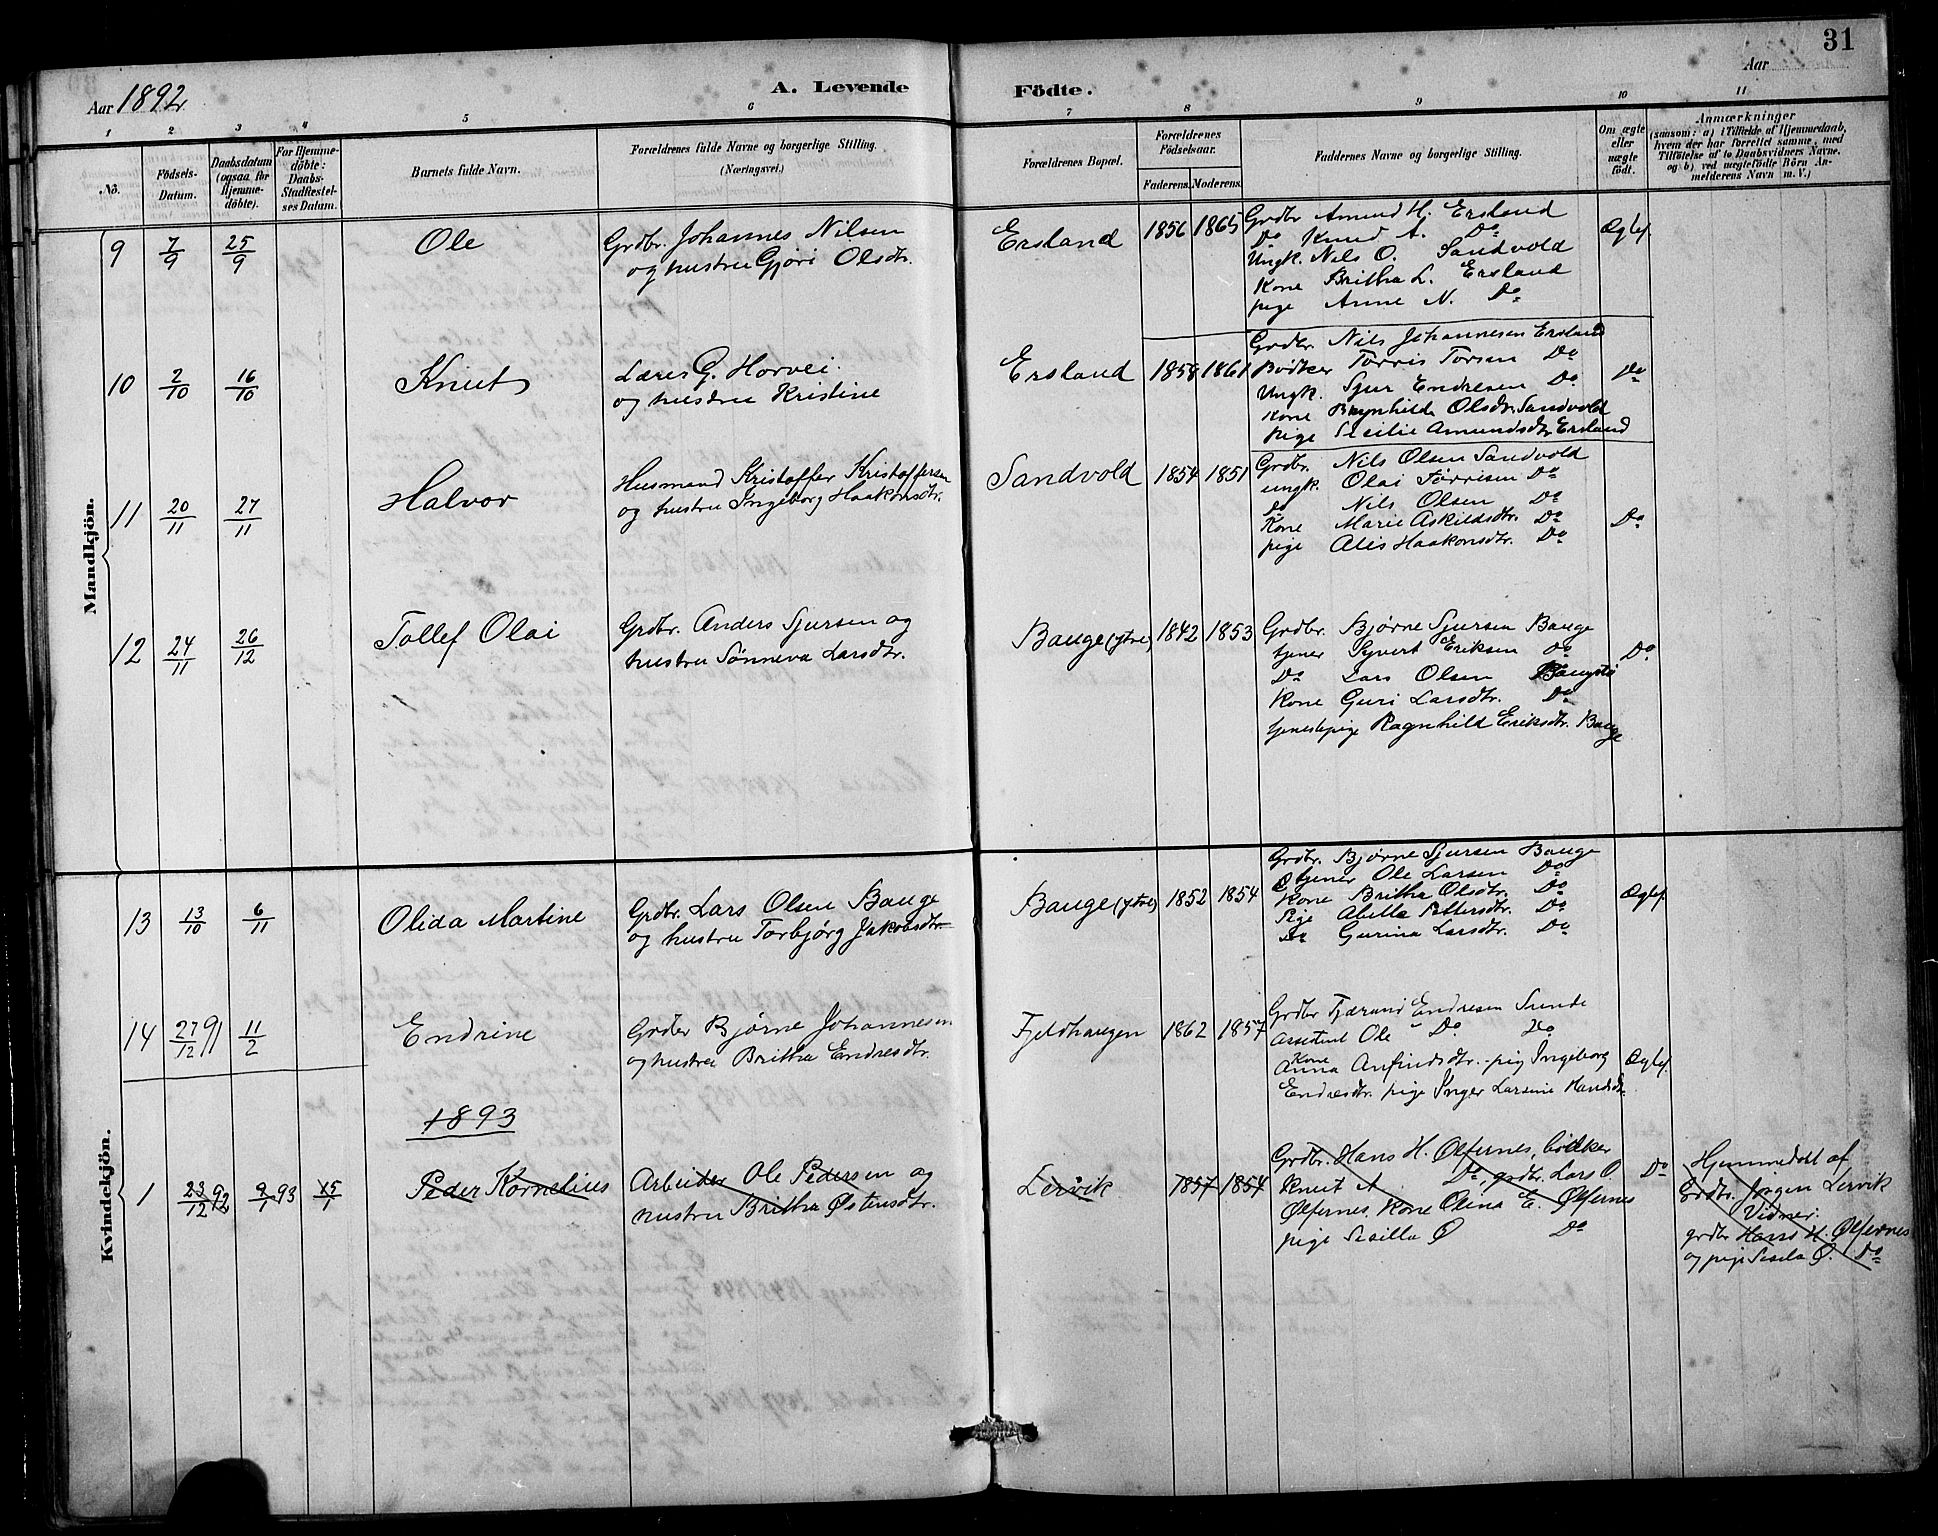 31
Aar 1892
A. Levende Födte.
Aar
1 2 3 4 5 6 7 8 9 10 11
No.
Födsels-Datum.
Daabsdatum (ogsaa for Hjemme-döbte).
For Hjemme-döbte: Daabs-Stadfæstel-ses Datum.
Barnets fulde Navn.
Forældrenes fulde Navne og borgerlige Stilling.
(Næringsvei.)
Forældrenes Bopæl.
Forældrenes Födselsaar.
Faderens. Moderens.
Faddernes Navne og borgerlige Stilling.
Om ægte eller uægte födt.
Anmærkninger
(saasom: a) i Tilfælde af Hjemmedaab,
hvem der har forrettet samme, med
Tilföielse af to Daabsvidners Navne,
og b) ved uægtefödte Börn An-
melderens Navn m. V.)
Mandkjön.
9 7/9 25/9 Ole
Grdbr. Johannes Nilsen
og hustru Gjøri Olsdtr.
Ersland 1856 1865
Grdbr Amund H. Ersland
Do Knud A. Do
Ungk. Nils O. Sandvold
Kone Britha L. Ersland
pige Anne N. Do
Ægtef.
10 2/10 16/10 Knut
Lærer G. Horvei
og hustru Kristine
Ersland 1858 1861
Grdbr. Nils Johannesen Ersland
Bødker Torris Torsen Do
Ungk. Sjur Endresen Do
Kone Brynhilde Olsdtr. Sandvold
Pige Sesilie Amundsdtr Ersland
Do
11 20/11 27/11 Halvor
Husmand Kristoffer Kristoffersen
og hustru Ingeborg Haakonsdtr.
Sandvold 1854 1851
Grdbr. Nils Olsen Sandvold
ungk. Olai Tørrisen Do
Do Nils Olsen Do
Kone Marie Askildsdtr. Do
pige Alis Haakonsdtr. Do
Do
12 24/11 26/12 Tollef Olai
Grdbr. Anders Sjursen og
hustru Sønneva Larsdtr.
Bauge (ytre) 1842 1853
Grdbr. Bjørne Sjursen Bauge
tjener Syvert Eriksen Do
Do Lars Olsen Baugstø
Kone Guri Larsdtr. Do
tjenestepige Ragnhild Eriksdtr. Bauge
Do
Kvindekjön.
13 13/10 6/11 Olida Martine
Grdbr. Lars Olsen Bauge
og hustru Torbjørg Jakobsdtr
Bauge (ytre) 1852 1854
Grdbr. Bjørne Sjursen Bauge
tjener Ole Larsen Do
Kone Britha Olsdtr. Do
Pige Abelle Pettersdtr. Do
Do Gurina Larsdtr. Do
Ægtef.
14 27/12 91 11/2 Endrine
Grdbr Bjørne Johannesen
og hustru Britha Endresdtr.
Fjeldhaugen 1862 1857
Grdbr Tjærand Endresen Sunde
Assistent Ole " Do Do
Kone
Anna Anfindsdtr. pig Ingeborg
Endresdtr. pige Inger Larsine Hansdtr.
Ægtef.
1893
1 23/12 92 9/1 93 15/1 Peder Kornelius
Arbeider Ole Pedersen og
hustru Britha Østensdtr.
Lervik 1857 1854
Grdbr. Hans H. Ølfernes, bødker
Knut A Do, grdbr. Lars O.
Ølfernes, Kone Olina E. Ølfernes
pige Sesilla Ø Do
Do
Hjemmedøbt af
Grdbr. Jørgen Lervik
Vidner
grdbr Hans H. Ølfernes
og pige Sesela Ø. Do